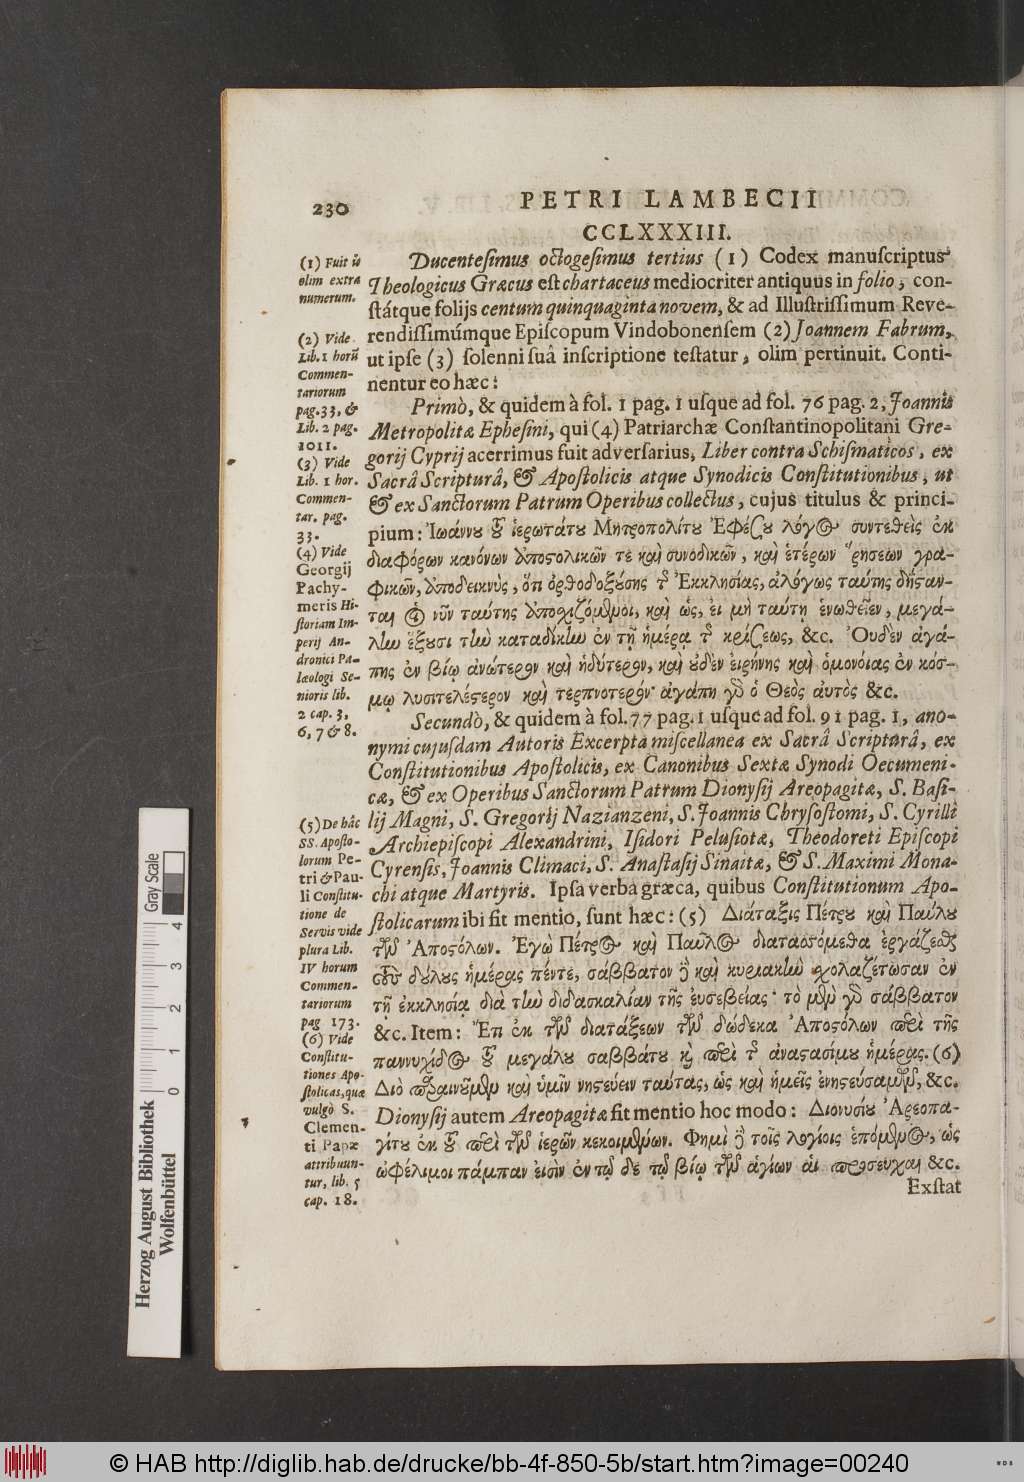 230
PETRI LAMBECII
CCLXXXIII.
Ducentesimus octogesimus tertius (1) Codex manuscriptus
Theologicus Græcus est chartaceus mediocriter antiquus in folio, con-
státque folijs centum quinquaginta novem, & ad Illustrissimum Reve-
rendissimúmque Episcopum Vindobonensem (2) Joannem Fabrum,
ut ipse (3) solenni suâ inscriptione testatur, olim pertinuit. Conti-
nentur eo hæc:
Primò, & quidem à fol. 1 pag. 1 usque ad fol. 76 pag. 2, Joannis
Metropolitæ Ephesini, qui (4) Patriarchæ Constantinopolitani Gre-
gorij Cyprij acerrimus fuit adversarius, Liber contra Schismaticos, ex
Sacrâ Scripturâ, & Apostolicis atque Synodicis Constitutionibus, ut
& ex Sanctorum Patrum Operibus collectus, cujus titulus & princi-
pium: Ἰωάννου τοῦ ἱερωτάτου Μητροπολίτου Ἐφέσου λόγος συντεθεὶς ἐκ
διαφόρων κανόνων ἀποστολικῶν τε καὶ συνοδικῶν, καὶ ἑτέρων ῥήσεων γρα-
φικῶν, ἀποδεικνὺς, ὅτι ὀρθοδοξούσης τῆς Ἐκκλησίας, ἀλόγως ταύτης διΐσταν-
ται οἱ νῦν ταύτης ἀποσχιζόμενοι, καὶ ὡς, εἰ μὴ ταύτῃ ἑνωθεῖεν, μεγά-
λην ἕξουσι τὴν καταδίκην ἐν τῇ ἡμέρᾳ τῆς κρίσεως, &c. Ὀυδὲν ἀγά-
πης ἐν βίῳ ἀνώτερον καὶ ἡδύτερον, καὶ οὐδὲν εἰρήνης καὶ ὁμονόιας ἐν κόσ-
μῳ λυσιτελέστερον καὶ τερπνοτερόν· ἀγάπη γὰρ ὁ Θεὸς ἀυτὸς &c.
Secundò, & quidem à fol. 77 pag. 1 usque ad fol. 91 pag. 1, ano-
nymi cujusdam Autoris Excerpta miscellanea ex Sacrâ Scripturâ, ex
Constitutionibus Apostolicis, ex Canonibus Sextæ Synodi Oecumeni-
cæ, & ex Operibus Sanctorum Patrum Dionysij Areopagitæ, S. Basi-
lij Magni, S. Gregorij Nazianzeni, S. Joannis Chrysostomi, S. Cyrilli
Archiepiscopi Alexandrini, Isidori Pelusiotæ, Theodoreti Episcopi
Cyrensis, Joannis Climaci, S. Anastasij Sinaitæ, & S. Maximi Mona-
chi atque Martyris. Ipsa verba græca, quibus Constitutionum Apo-
stolicarum ibi fit mentio, sunt hæc: (5) Διάταξις Πέτρου καὶ Παύλου
τῶν Ἀποστόλων. Ἐγὼ Πέτρος καὶ Παῦλος διατασσόμεθα ἐργάζεσθαι
τοὺς δούλους ἡμέρας πέντε, σάββατον δὲ καὶ κυριακὴν σχολαζέτωσαν ἐν
τῇ ἐκκλησίᾳ διὰ τὴν διδασκαλίαν τῆς ἐυσεβείας· τὸ μὲν γὰρ σάββατον
&c. Item: Ἔτι ἐκ τῶν διατάξεων τῶν δώδεκα Ἀποστόλων περὶ τῆς
παννυχίδος τοῦ μεγάλου σαββάτου καὶ περὶ τῆς ἀναστασίμου ἡμέρας. (6)
Διὸ παραινοῦμεν καὶ ὑμῖν νηστεύειν ταύτας, ὡς καὶ ἡμεῖς ἐνηστεύσαμεν, &c.
Dionysij autem Areopagitæ fit mentio hoc modo: Διονυσίου Ἀρεοπα-
γίτου ἐκ τοῦ περὶ τῶν ἱερῶν κεκοιμημένων. Φημὶ δὲ τοῖς λογίοις ἑπόμενος, ὡς
ὠφέλιμοι πάμπαν εἰσὶν ἐν τῷ δε τῷ βίῳ τῶν ἁγίων ἁι προσευχαὶ &c.
Exstat
(1) Fuit ũ
olim extra
numerum.
(2) Vide
Lib. 1 horũ
Commen-
tariorum
pag. 33, &
Lib. 2 pag.
1011.
(3) Vide
Lib. 1 hor.
Commen-
tar. pag.
33.
(4) Vide
Georgij
Pachy-
meris Hi-
storiam Im-
perij An-
dronici Pa-
læologi Se-
nioris lib.
2 cap. 3,
6, 7 & 8.
(5) De hâc
SS. Aposto-
lorum Pe-
tri & Pau-
li Constitu-
tione de
Servis vide
plura Lib.
IV horum
Commen-
tariorum
pag 173.
(6) Vide
Constitu-
tiones Apo-
stolicas, quæ
vulgò S.
Clemen-
ti Papæ
attribuun-
tur, lib. 5
cap. 18.
Herzog August Bibliothek
Wolfenbüttel
Gray Scale
0 1 2 3 4
© HAB http://diglib.hab.de/drucke/bb-4f-850-5b/start.htm?image=00240